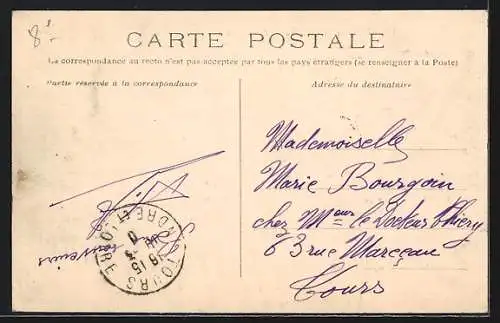 8f
CARTE POSTALE
La correspondance au recto n'est pas acceptée par tous les pays étrangers (se renseigner à la Poste)
Partie réservée à la correspondance
Adresse du destinataire
souvenirs
TOURS
INDRE-ET-LOIRE
Mademoiselle
Marie Bourgoin
chez Mr le Docteur Thierry
63 rue Marceau
Tours